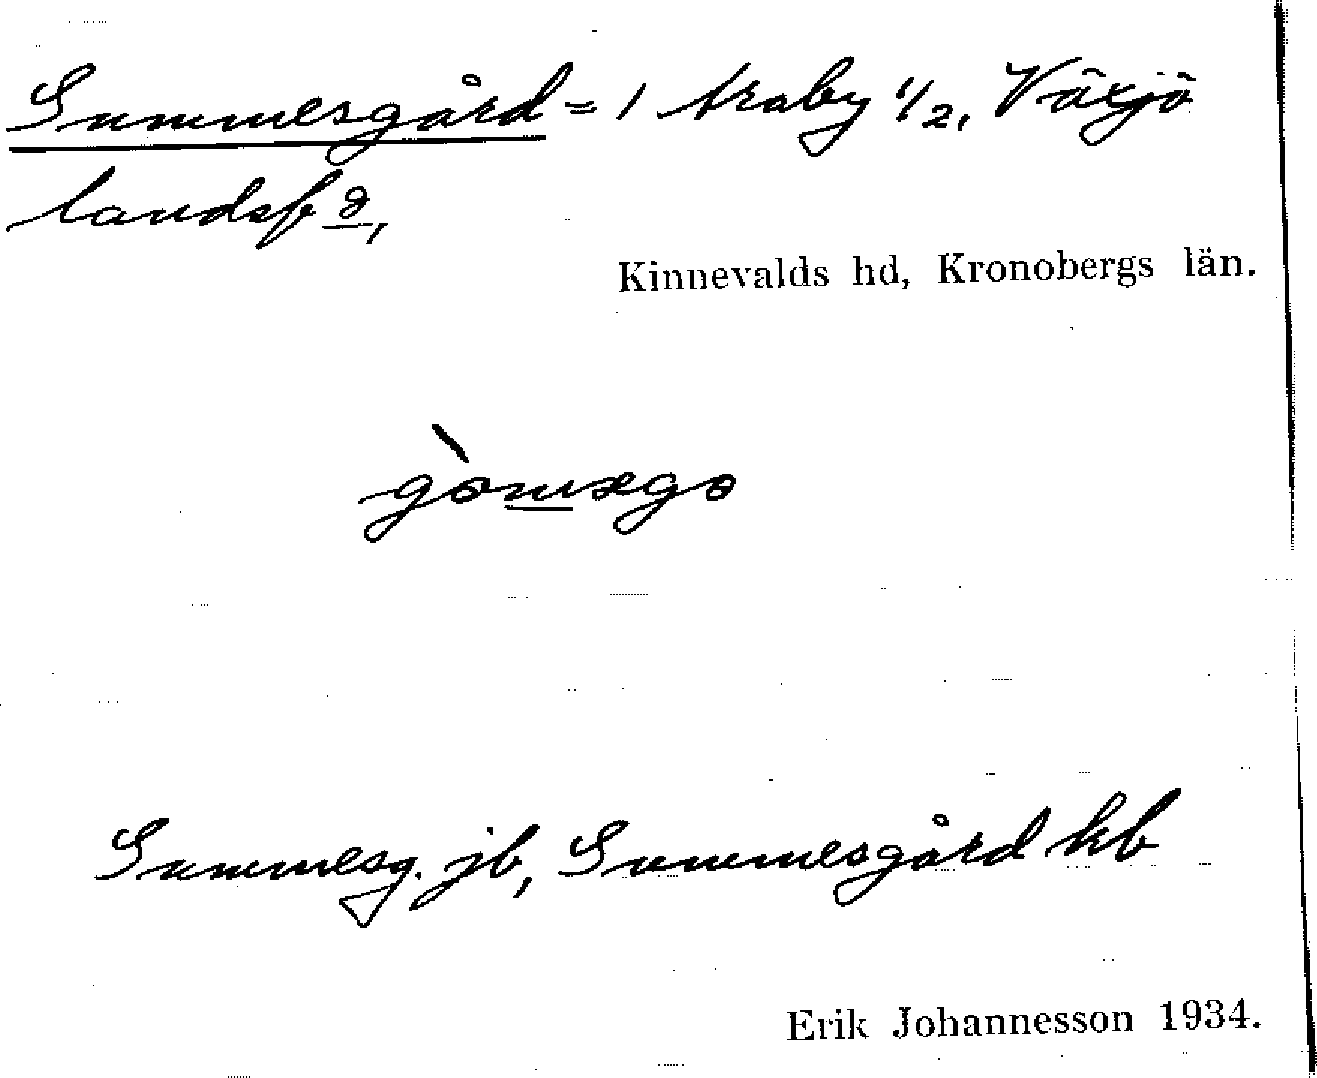 Gummesgård = 1 Araby 1/2, Växjö
landsf
Kinnevalds hd, Kronobergs län.
Gummesg. jb, Gummesgård kb
Erik Johannesson 1934.